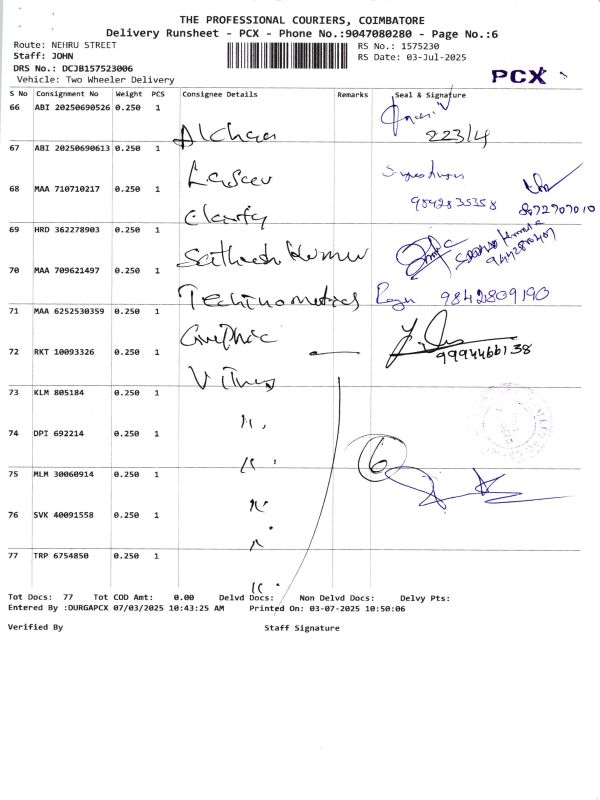 THE PROFESSIONAL COURIERS, COIMBATORE
Delivery Runsheet - PCX - Phone No.:9047080280 - Page No.:6
Route: NEHRU STREET
RS No.: 1575230
Staff: JOHN
RS Date: 03-Jul-2025
DRS No.: DCJB157523006
Vehicle: Two Wheeler Delivery
PCX
S No Consignment No Weight PCS Consignee Details Remarks Seal & Signature
66 ABI 20250690526 0.250 1
223/4
67 ABI 20250690613 0.250 1
68 MAA 710710217 0.250 1
9842835358
8872707010
Clarity
69 HRD 362278903 0.250 1
Sathesh Kumar
70 MAA 709621497 0.250 1
Techinometics 9842809190
71 MAA 6252530359 0.250 1
Graphic
72 RKT 10093326 0.250 1
9994466138
73 KLM 805184 0.250 1
74 DPI 692214 0.250 1
6
75 MLM 30060914 0.250 1
76 SVK 40091558 0.250 1
77 TRP 6754850 0.250 1
Tot Docs: 77 Tot COD Amt: 0.00 Delvd Docs: Non Delvd Docs: Delvy Pts:
Entered By :DURGAPCX 07/03/2025 10:43:25 AM Printed On: 03-07-2025 10:50:06
Verified By Staff Signature